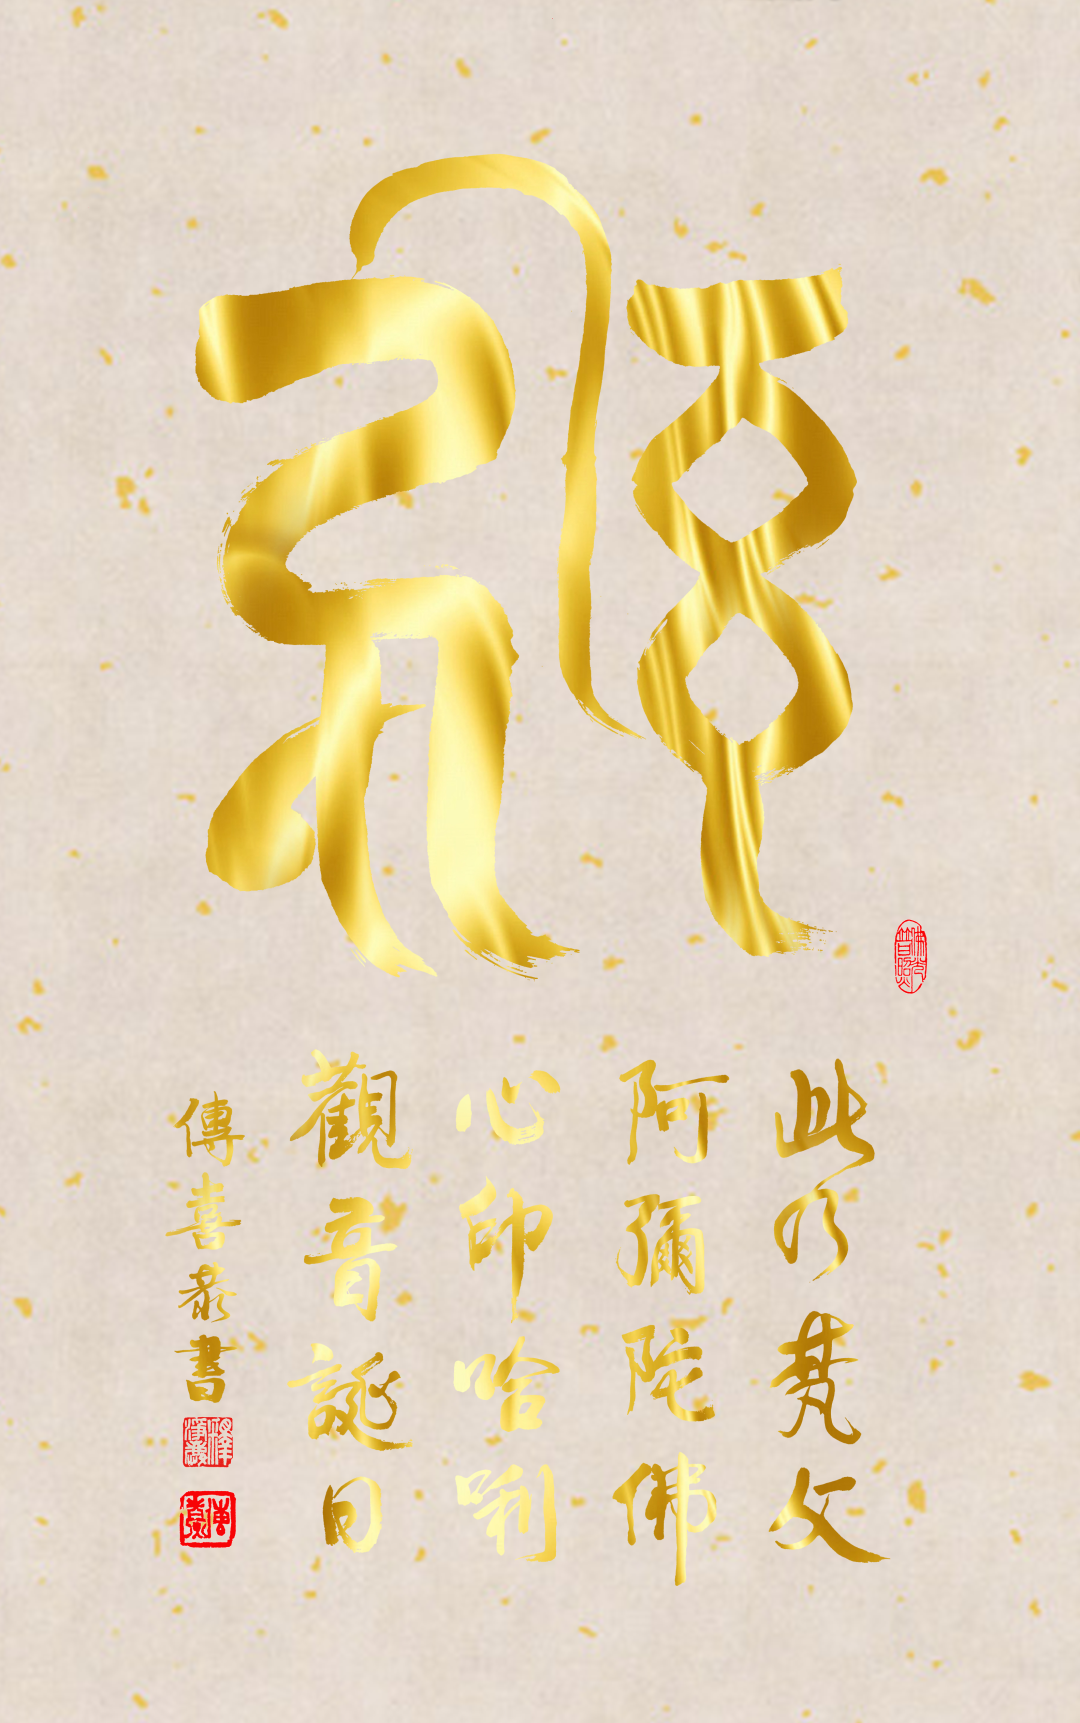 ह्रीः
此乃梵文
阿彌陀佛
心印哈唎
觀音誕日
傳喜恭書
佛光普照